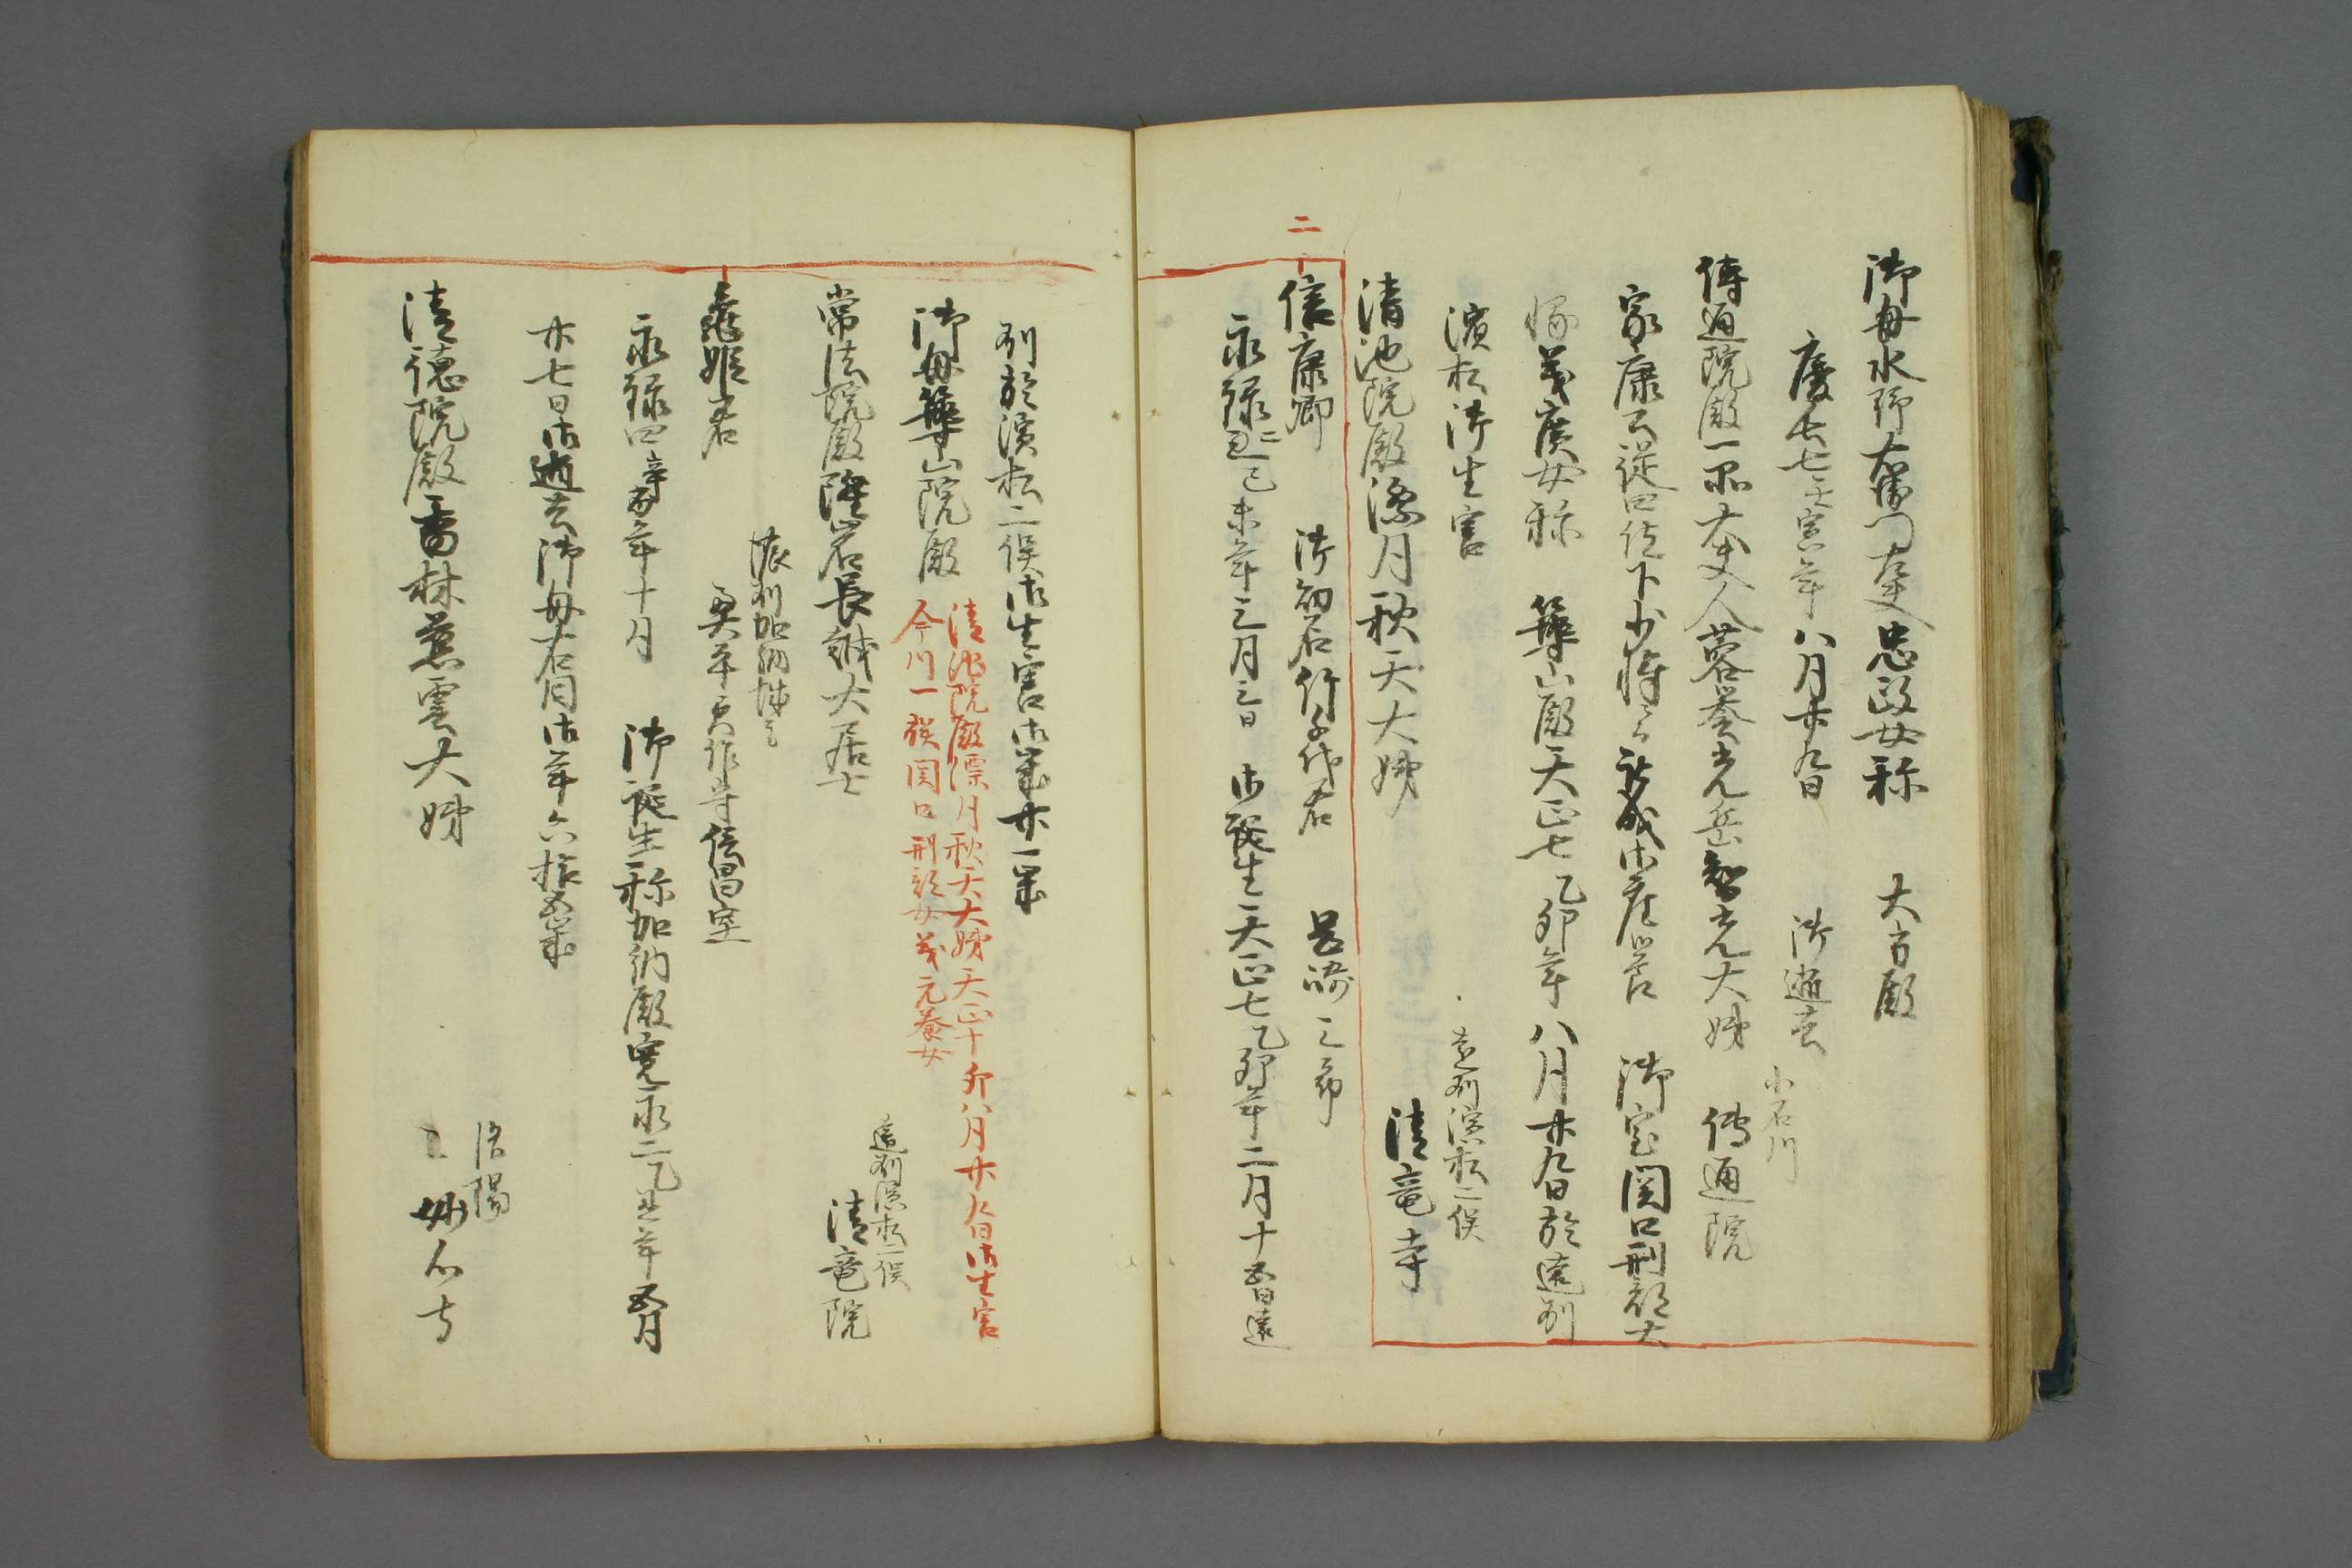 御母水野右衛門大夫忠政女称 大方殿
慶長七壬寅年八月廿九日 御逝去
小石川
傳通院殿一品大夫人蓉誉光岳智光大姉 傳通院
家康公従四位下少将ニ 御産営 御室関口刑部大
義廣女称 築山殿天正七乙卯年八月廿九日於遠州
濱松御生害
遠州濱松二俣
清池院殿潭月秋天大姉 清竜寺
二
信康卿 御幼名竹千代君 三郎
永禄二己未年三月三日 御誕生天正七乙卯年二月十五日遠
州於濱松二俣御生害御歳廿一歳
御母築山院殿
清池院殿潭月秋天大姉天正十卯八月廿九日御生害
今川一族関口刑部女義元養女
遠州濱松二俣
常法院殿隆岩長誠大居士 清竜院
亀姫君
濃州加納城主
奥平美作守信昌室
永禄四辛酉年十月 御誕生称加納殿寛永二乙丑年五月
廿七日御逝去御母右同御年六拾五歳
洛陽
清徳院殿香林慈雲大姉 妙心寺